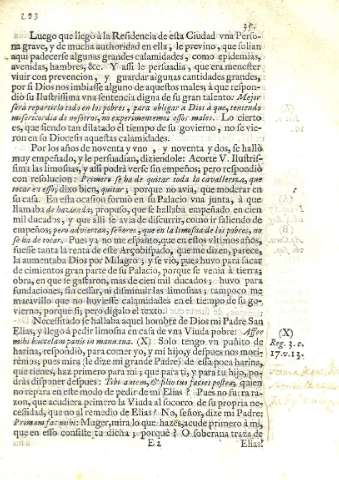 Luego que llegò à la Residencia de esta Ciudad vna Perso-
na grave, y de mucha authoridad en ella, le previno, que solian
aqui padecerse algunas grandes calamidades, como epidemias,
avenidas, hambres, &c. Y assi le persuadia, que era menester
vivir con prevencion, y guardar algunas cantidades grandes,
por si Dios nos imbiasse alguno de aquestos males; à que respon-
diò su Ilustrissima vna sentencia digna de su gran talento: Mejor
serà repartirlo todo en los pobres, para obligar à Dios à que, teniendo
misericordia de nosotros, no experimentemos essos males. Lo cierto
es, que siendo tan dilatado el tiempo de su govierno, no se vie-
ron en su Diocesis aquestas calamidades.
Por los años de noventa y vno, y noventa y dos, se hallò
muy empeñado, y le persuadian, diziendole: Acorte V. Ilustris-
sima las limosnas, y assi podrà verse sin empeños; pero respondiò
con resolucion: Primero se ha de quitar toda la cavalleriza, que
tocar en essos; dixo bien, quitar, porque no avia, que moderar en
su casa. En esta ocasion formò en su Palacio vna junta, à que
llamaba de hazienda; propuso, que se hallaba empeñado en cien
mil ducados, y que alli se avia de discurrir, como ir saliendo de
empeños; pero adviertan, señores, que en la limosna de los pobres, no
se ha de tocar. Pues ya no me espanto, que en estos vltimos años,
fuesse tanta la renta de este Arçobispado, que me dizen, parece,
la aumentaba Dios por Milagro; y se viò, pues huvo para sacar
de cimientos gran parte de su Palacio, porque se venia à tierra;
obra, en que se gastaron, mas de cien mil ducados; huvo para
fundaciones, sin cessar, ni disminuir las limosnas; tampoco me
maravillo que no huviesse calamidades en el tiempo de su go-
vierno, porque sì; pero digalo el texto.
Necessitado se hallaba aquel hombre de Dios mi Padre San
Elias, y llegò à pedir limosna en casa de vna Viuda pobre: Affer
mihi buccellam panis in manu tua. (X) Solo tengo vn puñito de
harina, respondiò, para comer yo, y mi hijo, y despues nos mori-
rèmos; pues mira (le dize mi grande Padre) de essa poca harina,
que tienes, haz primero para mi; que para ti, y para tu hijo, po-
dràs disponer despues: Tibi autem, & filio tuo facies postea, quien
no repara en este modo de pedir de mi Elias? Pues no fuera ra-
zon, que acudiera primero la Viuda al socorro de su propria ne-
cesidad, que no al remedio de Elias? No, señor, dize mi Padre:
Primum fac mihi: Muger, mira lo que hazes, acude primero à mi,
que en esso consiste tu dicha; porquè? O soberana traza de
E 2 Elias.
(X)
Reg. 3. c.
17. v. 13.